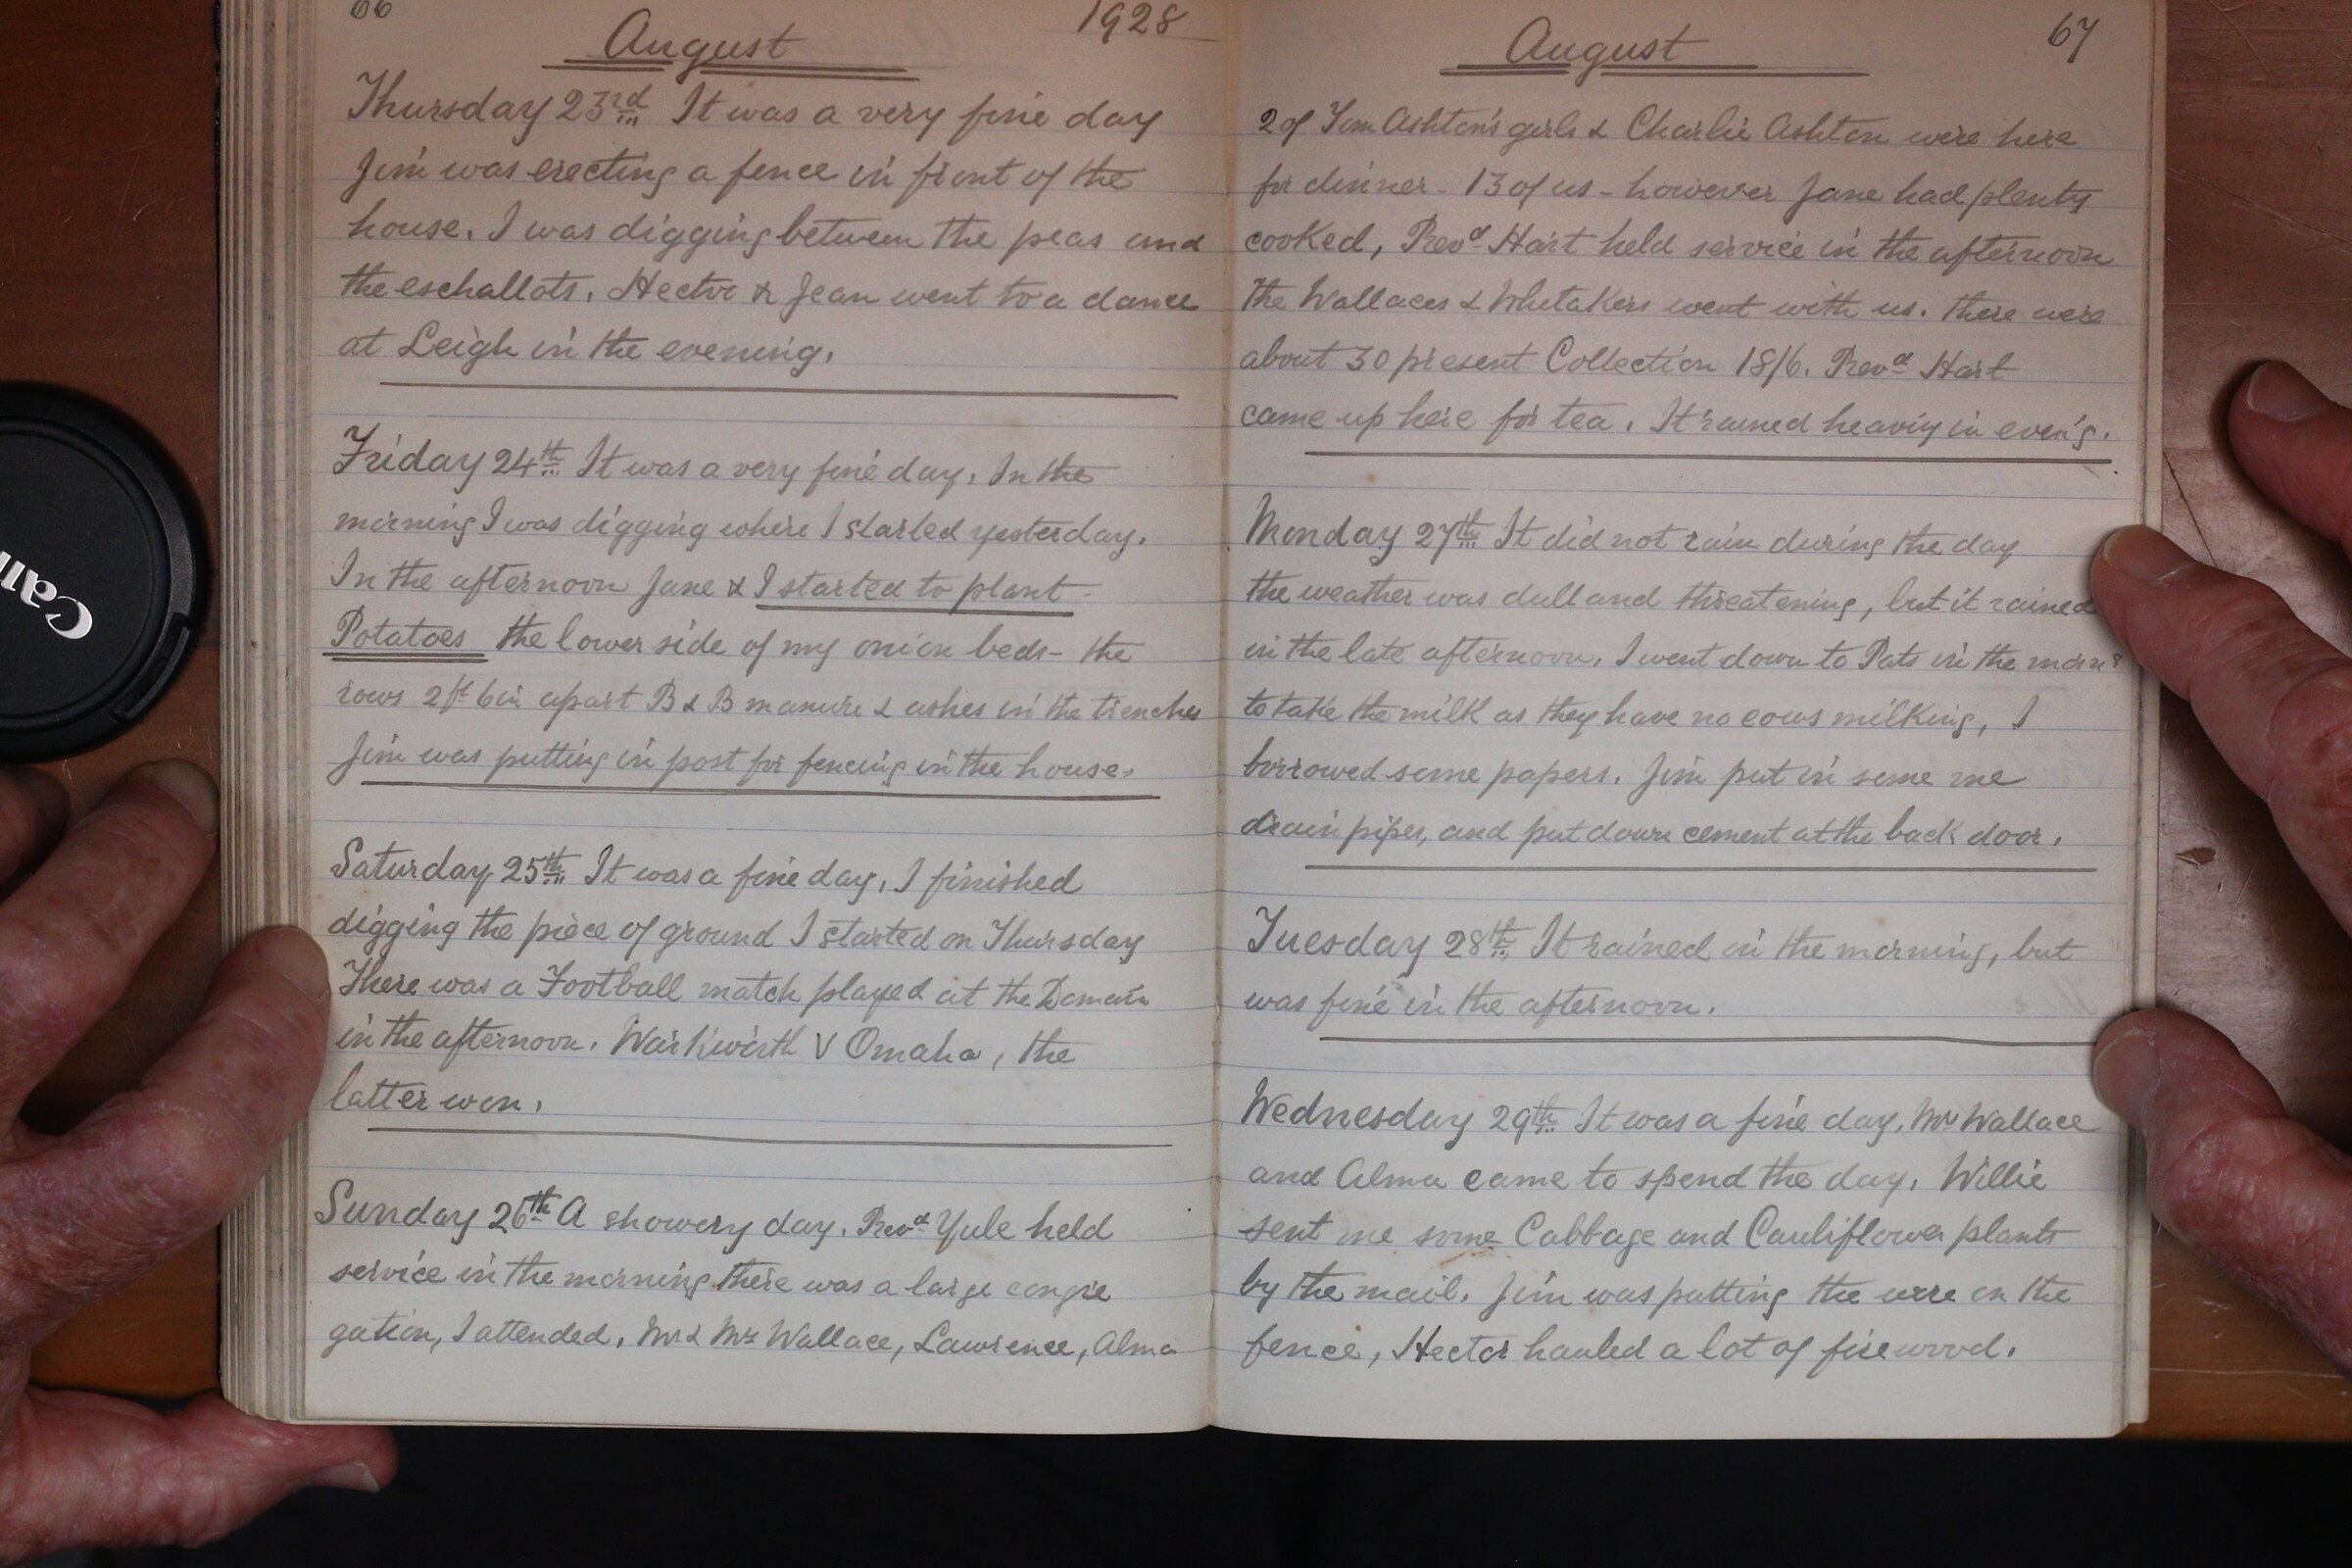 66
1928
August
Thursday 23rd It was a very fine day
Jim was erecting a fence in front of the
house. I was digging between the peas and
the eschallots. Hector & Jean went to a dance
at Leigh in the evening.
Friday 24th It was a very fine day. In the
morning I was digging where I started yesterday.
In the afternoon Jane & I started to plant
Potatoes the lower side of my onion beds - the
rows 2ft 6in apart B & B manure & ashes in the trenches
Jim was putting in post for fencing in the house.
Saturday 25th It was a fine day. I finished
digging the piece of ground I started on Thursday
There was a Football match played at the Domain
in the afternoon. Warkworth V Omaha, the
latter won.
Sunday 26th A showery day. Revd Yule held
service in the morning there was a large congre
gation, I attended. Mr & Mrs Wallace, Lawrence, Alma
August
67
2 of Tom Ashton's girls & Charlie Ashton were here
for dinner - 13 of us - however Jane had plenty
cooked, Revd Hart held service in the afternoon
The Wallaces & Whitakers went with us. there were
about 30 present Collection 18/6. Revd Hart
came up here for tea. It rained heaviy in even'g.
Monday 27th It did not rain during the day
the weather was dull and threatening, but it rained
in the late afternoon. I went down to Pats in the
to take the milk as they have no cows milking, I
borrowed some papers. Jim put in some me
drain pipes, and put down cement at the back door.
Tuesday 28th It rained in the morning, but
was fine in the afternoon.
Wednesday 29th It was a fine day. Mr Wallace
and Alma came to spend the day. Willie
sent me some Cabbage and Cauliflower plants
by the mail. Jim was putting the wire on the
fence, Hector hauled a lot of firewood.